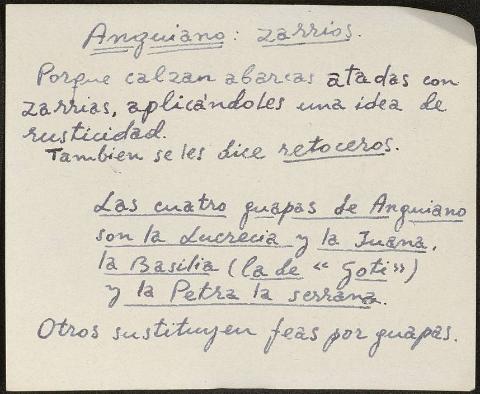 Anguiano: zarrios.
Porque calzan abarcas atadas con
zarrias, aplicándoles una idea de
rusticidad.
Tambien se les dice retoceros.
Las cuatro guapas de Anguiano
son la Lucrecia y la Juana,
la Basilia (la de "Goti")
y la Petra la serrana.
Otros sustituyen feas por guapas.